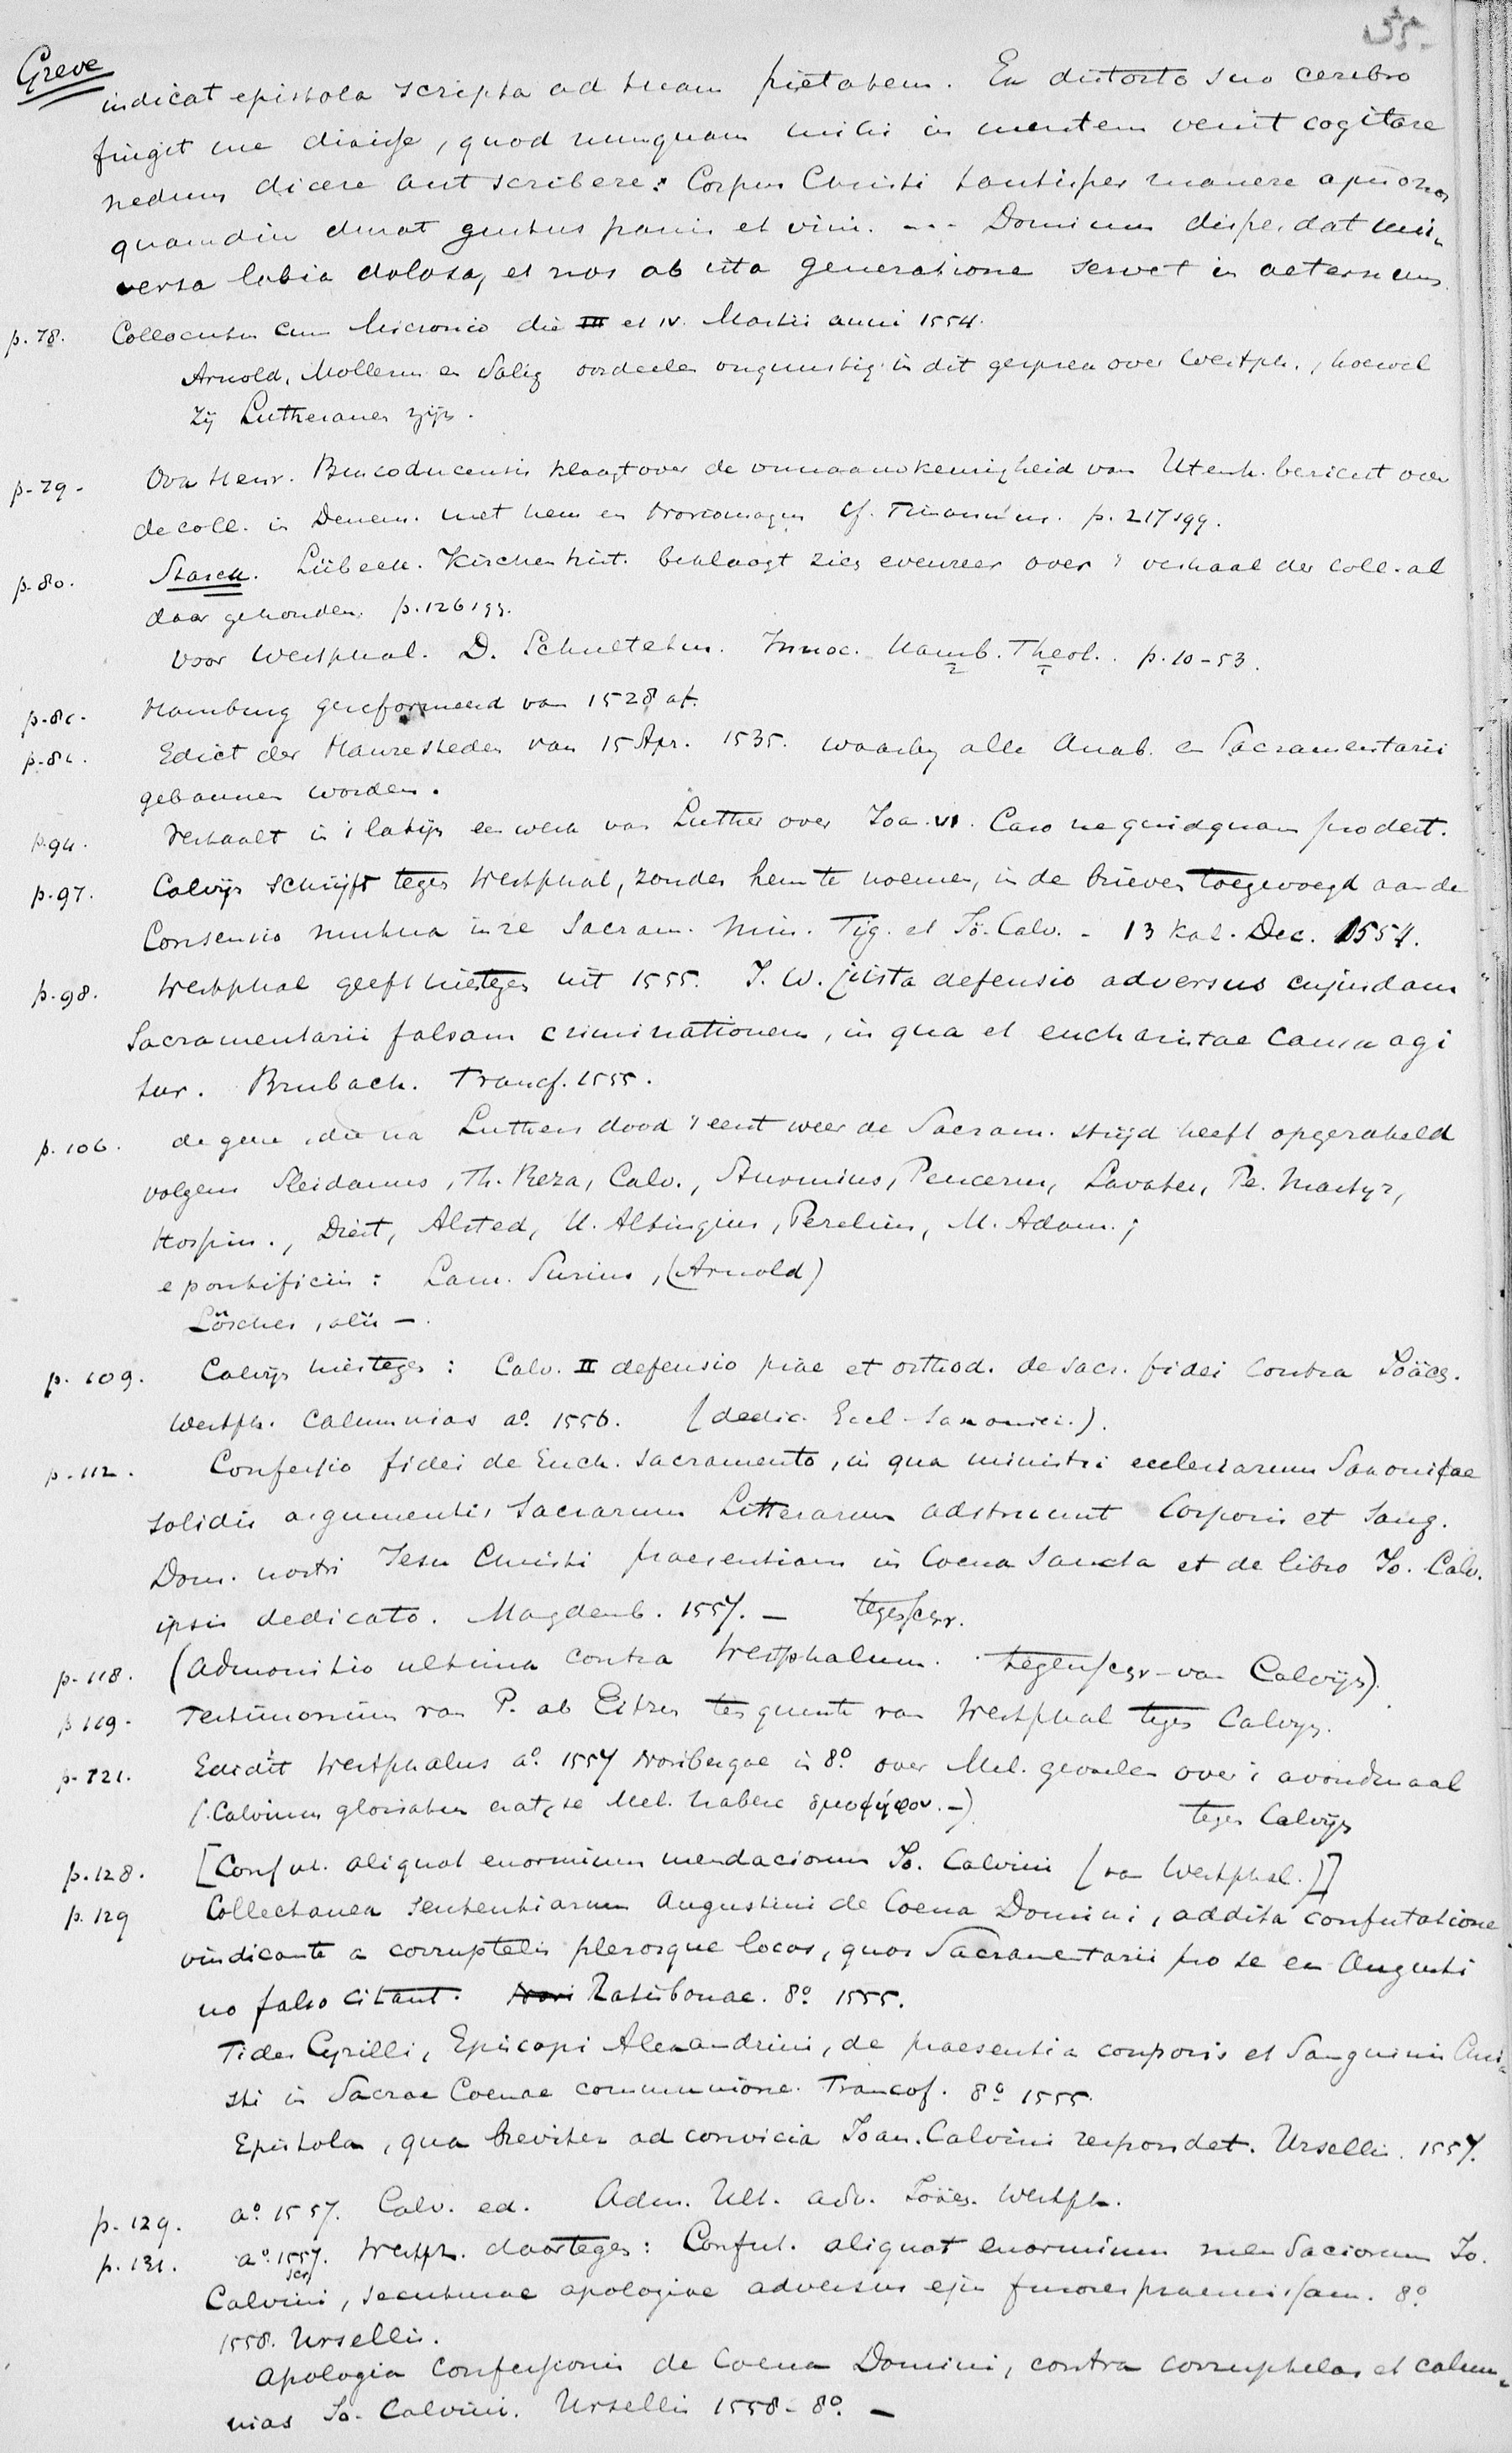 55.
Greve
indicat epistola scripta ad tuam pietatem. Ex distorto suo cerebro
fingit me dixisse, quod nunquam mihi in mentem venit cogitare
nedum dicere aut scribere: Corpus Christi tantisper manere apud nos
quamdiu durat gustus panis et vini. --- Dominus disperdat uni-
versa labia dolosa, et nos ab ista generatione servet in aeternum.
p. 78. Collocutus cum Micronio die III et IV. Martii anni 1554.
Arnold, Mollerus en Salig oordeelen ongunstig in dit gesprek over Westph., hoewel
zij Lutheranen zijn.
p. 79. Henr. Buscoducensis klaagt over de onnaauwkeurigheid van Utenh. bericht over
de coll. in Denem. met hem en Noviomagus cf. p. 217 sqq.
p. 80. Starck. Lübeck. Kirchenhist. beklaagt zich evenzeer over 't verhaal der coll. al
daar gehouden. p. 126 sqq.
voor Westphal. D. Schultetus. Innoc. Hamb. Theol. p. 10-53.
2 1
p. 81. Hamburg gereformeerd van 1528 af.
p. 81. Edict der Hanzesteden van 15 Apr. 1535. waarby alle Anab. en Sacramentarii
gebannen worden.
p. 94. Vertaalt in 't latijn een werk van Luther over Joa. VI. Caro nequidquam prodest.
p. 97. Calvijn schrijft tegen Westphal, zonder hem te noemen, in de brieven toegevoegd aan de
Consensio mutua in re Sacram. Min. Tig. et Jo. Calv. - 13 Kal. Dec. 1554.
p. 98. Westphal geeft hiertegen uit 1555. J. W. justa defensio adversus cujusdam
Sacramentarii falsam criminationem, in qua et eucharistiae causa agi
tur. Brubach. Francf. 1555.
p. 106. de gene, die na Luthers dood 't eerst weer de Sacram. strijd heeft opgerakeld
volgens Sleidanus, Th. Beza, Calv., Sturmius, Peucerus, Lavater, Pe. Martyr,
Hospin., Diest, Alsted, H. Altingius, Perelius, M. Adam.;
e pontificiis: Laur. Surius, (Arnold)
Löscher, alii -.
p. 109. Calvijn hiertegen: Calv. II defensio piae et orthod. de sacr. fidei contra Joäch.
Westph. calumnias aº. 1556. (dedic. Eccl. Saxonici.).
p. 112. Confessio fidei de Euch. sacramento, in qua ministri ecclesiarum Saxonicae
solidis argumentis sacrarum Litterarum adstruunt Corporis et sang.
Dom. nostri Jesu Christi praesentiam in Coena Sancta et de libro Jo. Calv.
ipsis dedicato. Magdenb. 1557. - tegenschr.
p. 118. (Admonitio ultima contra Westphalum. tegenschr. van Calvijn).
p. 119. Testimonium van P. ab Eitzen ten gunste van Westphal tegen Calvyn.
p. 121. Edidit Westphalus aº. 1557 Noribergae in 8º. over Mel. gevoelen over 't avondmaal
(Calvinus gloriatus erat, se Mel. habere ὁμοψήφον. -) tegen Calvijn
p. 128. [Confut. aliquot enormium mendaciorum Jo. Calvini [van Westphal.]]
p. 129 Collectanea sententiarum Augustini de Coena Domini, addita confutatione
vindicante a corruptelis plerosque locos, quos Sacramentarii pro se ex Augusti
no falso citant. Ratisbonae. 8º. 1555.
Fides Cyrilli, Episcopi Alexandrini, de praesentia corporis et Sanguinis Chri-
sti in Sacrae Coenae communione. Francof. 8º 1555.
Epistola, qua breviter ad convicia Joan. Calvini respondet. Ursellis. 1557.
p. 129. aº. 1557. Calv. ed. Adm. Ult. adv. Joäch. Westph.
p. 131. aº. 1557. Westph. daartegen: Confut. aliquot enormium mendaciorum Jo.
scr
Calvini, secuturae apologiae adversus ejus furores praemissam. 8º
1558. Ursellis.
Apologia Confessionis de Coena Domini, contra corruptelas et calum-
nias Jo. Calvini. Ursellis 1558. 8º. -